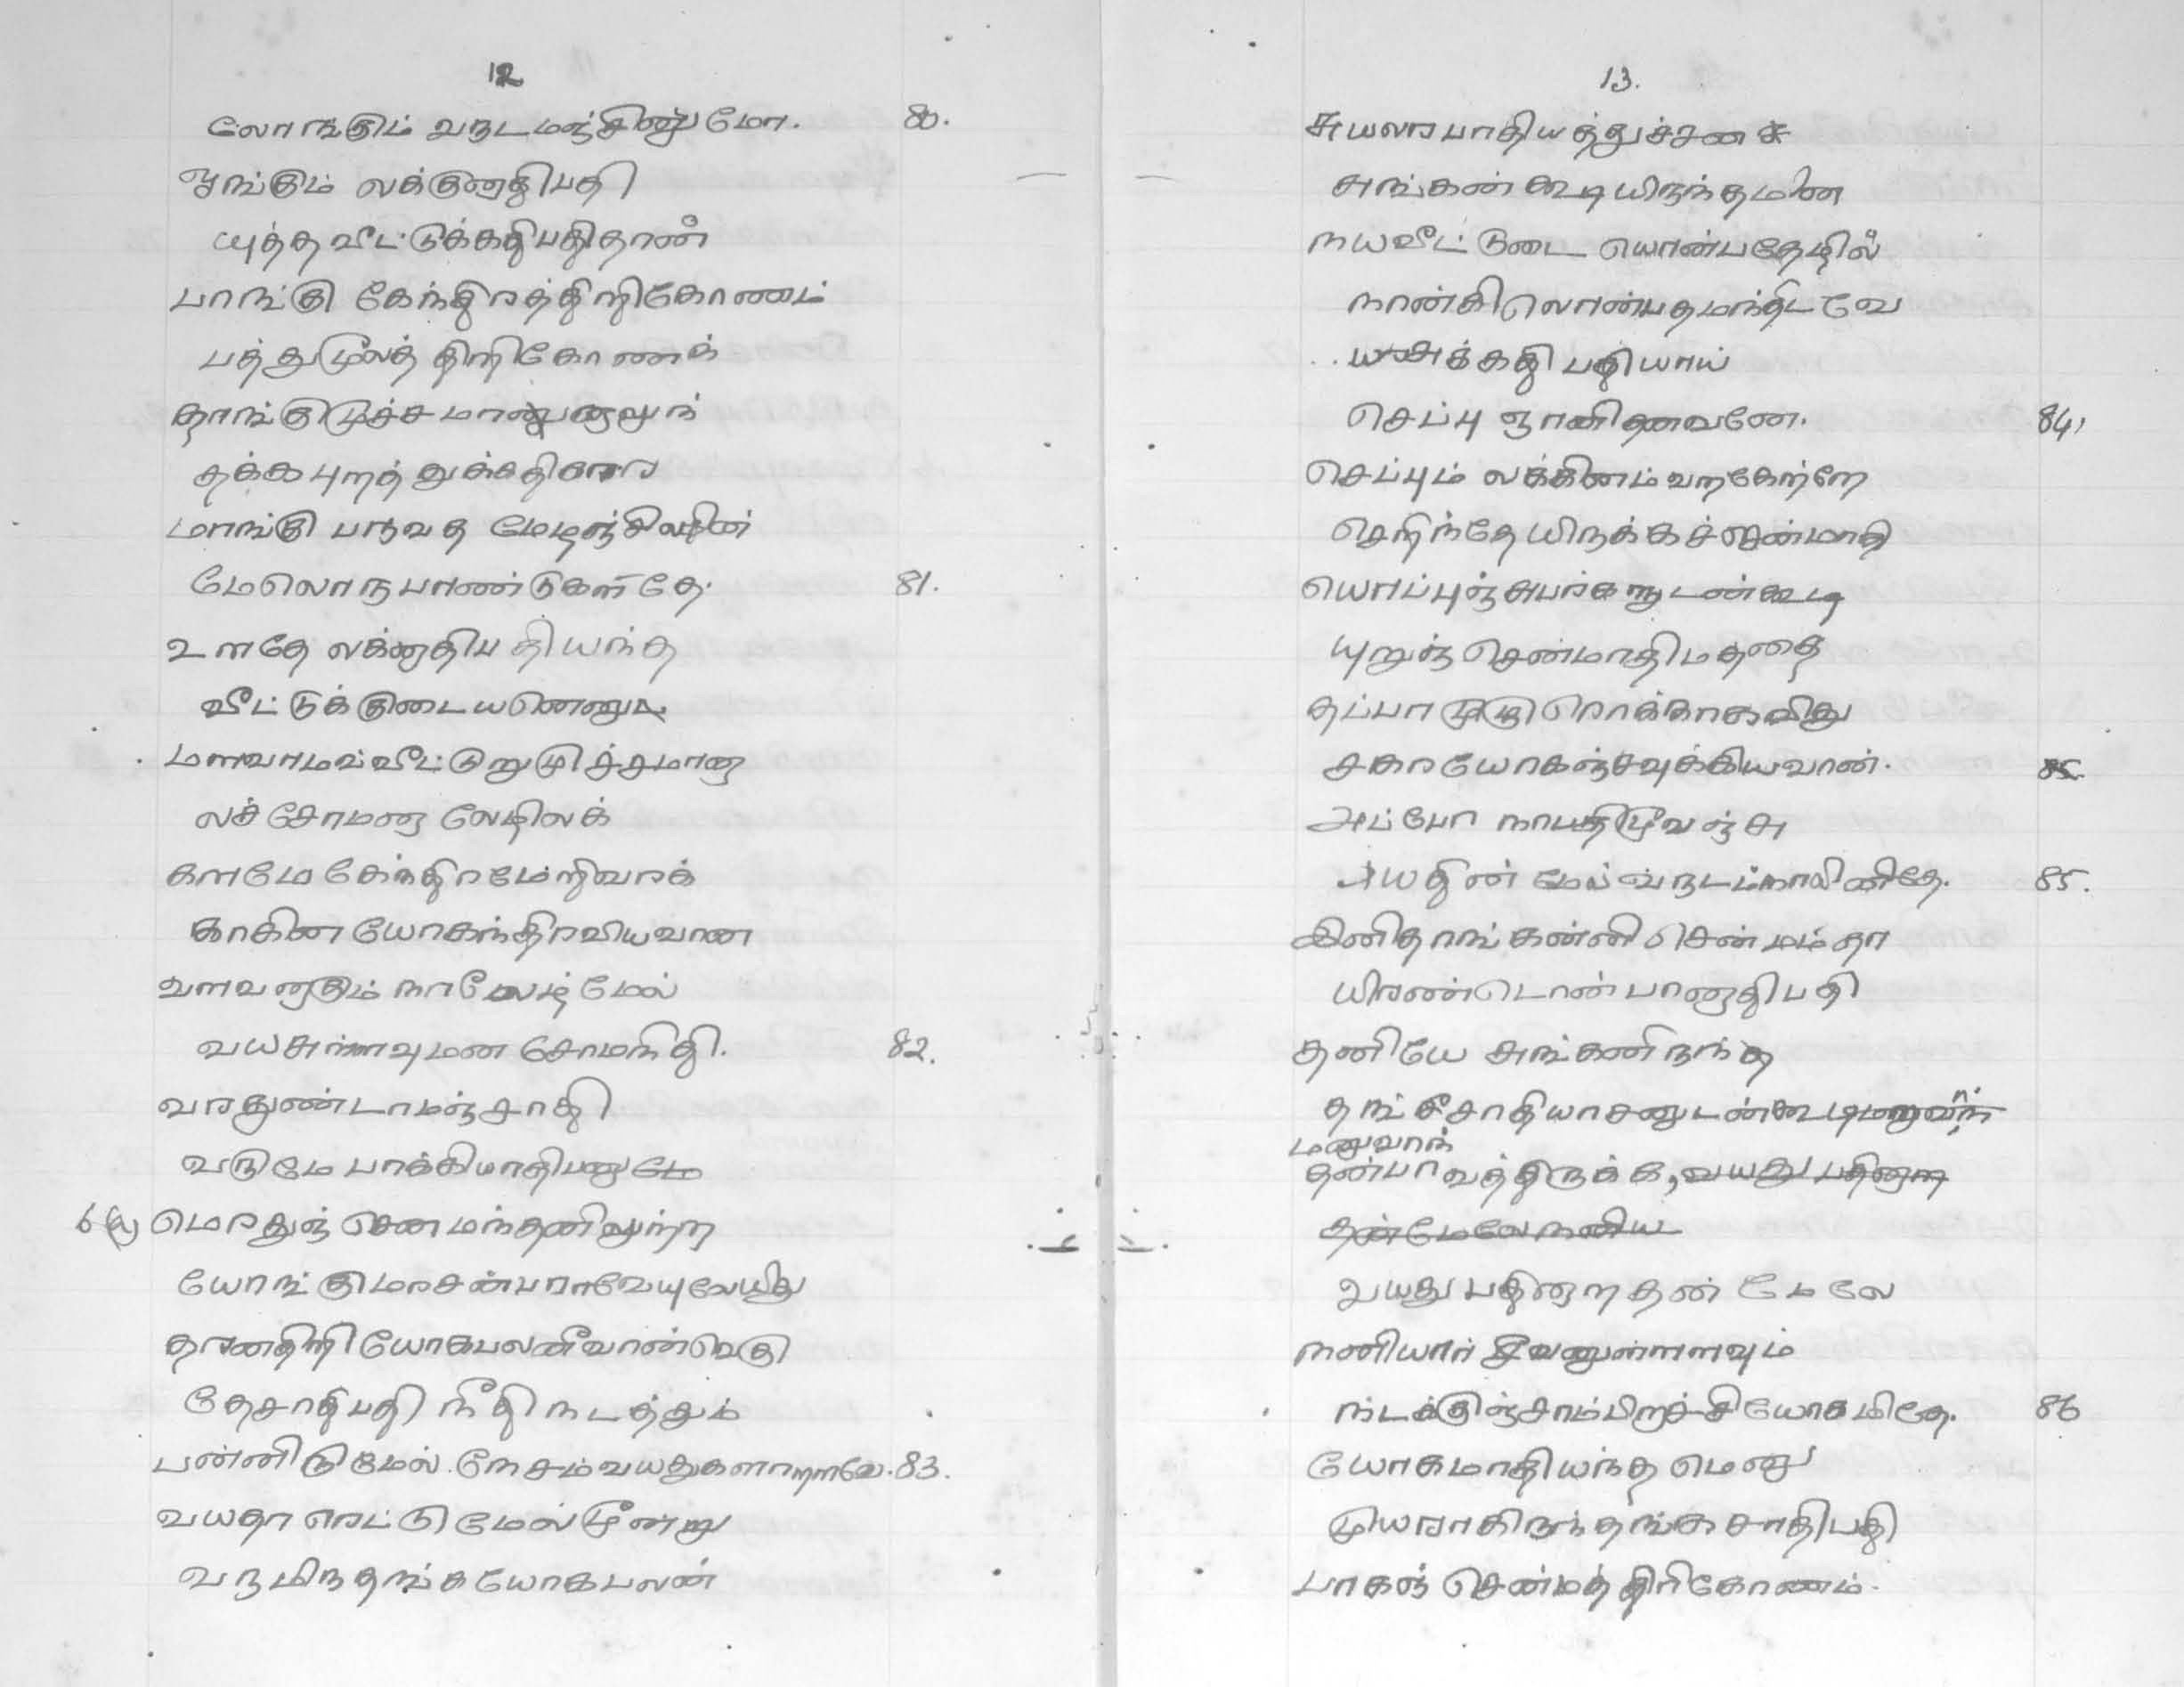 12
லோங்கும் வருடமஞ்சினுப்மோ. 80.
ஆங்கும் லக்குனாதிபதி
யுத்த வீட்டுக்கதிபதிதான்
பாங்கு கேந்திரத்திறிகோணம்
பத்துமூலத் திறிகோணக்
தாங்குமுச்ச
தக்க புறத்துக்கதிகார
மாங்கு பருவத மேழஞ்சிலதின்
மேலொருபாண்டுகள்தே. 81.
உளதே லக்னதிபதியந்த
வீட்டுக்குடையனெனும்
மளவாமவ்வீட்டுறுமுச்சமான
லச்சோமனு லேழிலக்
களமே கேந்திரமேறிவரக்
காகின யோகந்திரவியவான
வளவனாகும் நாலேழ் மேல்
வயசுள்ளவுமண சோமநிதி. 82.
வரதுண்டாமஞ்சாதி
வடுமே பாக்கியாதிபனுமே
6 (a) மெரதுஞ் சென மந்தனிலுற்ற
யோங்குமரசன்பராவேயுலேயிது
தரணதிறியோகபலனீவான்வெகு
தேசாதிபதி நீதி நடத்தும்
பன்னிரு மேல். நேசம்வயதுகளாறாமே. 83.
வயதா ரெட்டு மேல் மூன்று
வருமிருதங்க யோகபலன்
13.
சுயவரபாதியத்துச்சனக்
சுங்கன் கூடியிருந்தமின
நயவீட்டுடை யொன்பதேழில்
நான்கிலொன்பதமர்ந்திடவே
க்கதி பதியாய்
செப்பு ஞானிதனவனே. 84,
செப்பும் லக்கினம் வறகேற்றே
செறிந்தே யிருக்கச்ஜன்மாதி
யொப்புஞ்சுபர்களுடன்கூடி
யுறுஞ் சென்மாதிபதத்தை
தப்பா முழு நொக்காகவிது
சகரயோகஞ்சவுக்கியவான். 85.
அப்போ நாபதிமூவஞ்சு
வயதின் மேல் வருடம்நாலினிதே. 85.
இனிதாங் கன்னி சென்மம்தா
யிரண்டொன் பானதிபதி
தனியே சுங்கனிருந்த
தங்கீசாதியாசனுடன்கூடிமறுவான்
மறுவான்
தன்பாவத்திருக்க, வயது பதினாறு
தன்மேலேநனிய
வயது பதினாறதன் மேலே
நனியார் சீவனுள்ளளவும்
நடக்குஞ்சாம்பிறாச்சியோகமிதே. 86
யோகமாதியந்த மெனு
முயராகிருந்தங்கசாதிபதி
பாகஞ் சென்மத் திரிகோணம்.